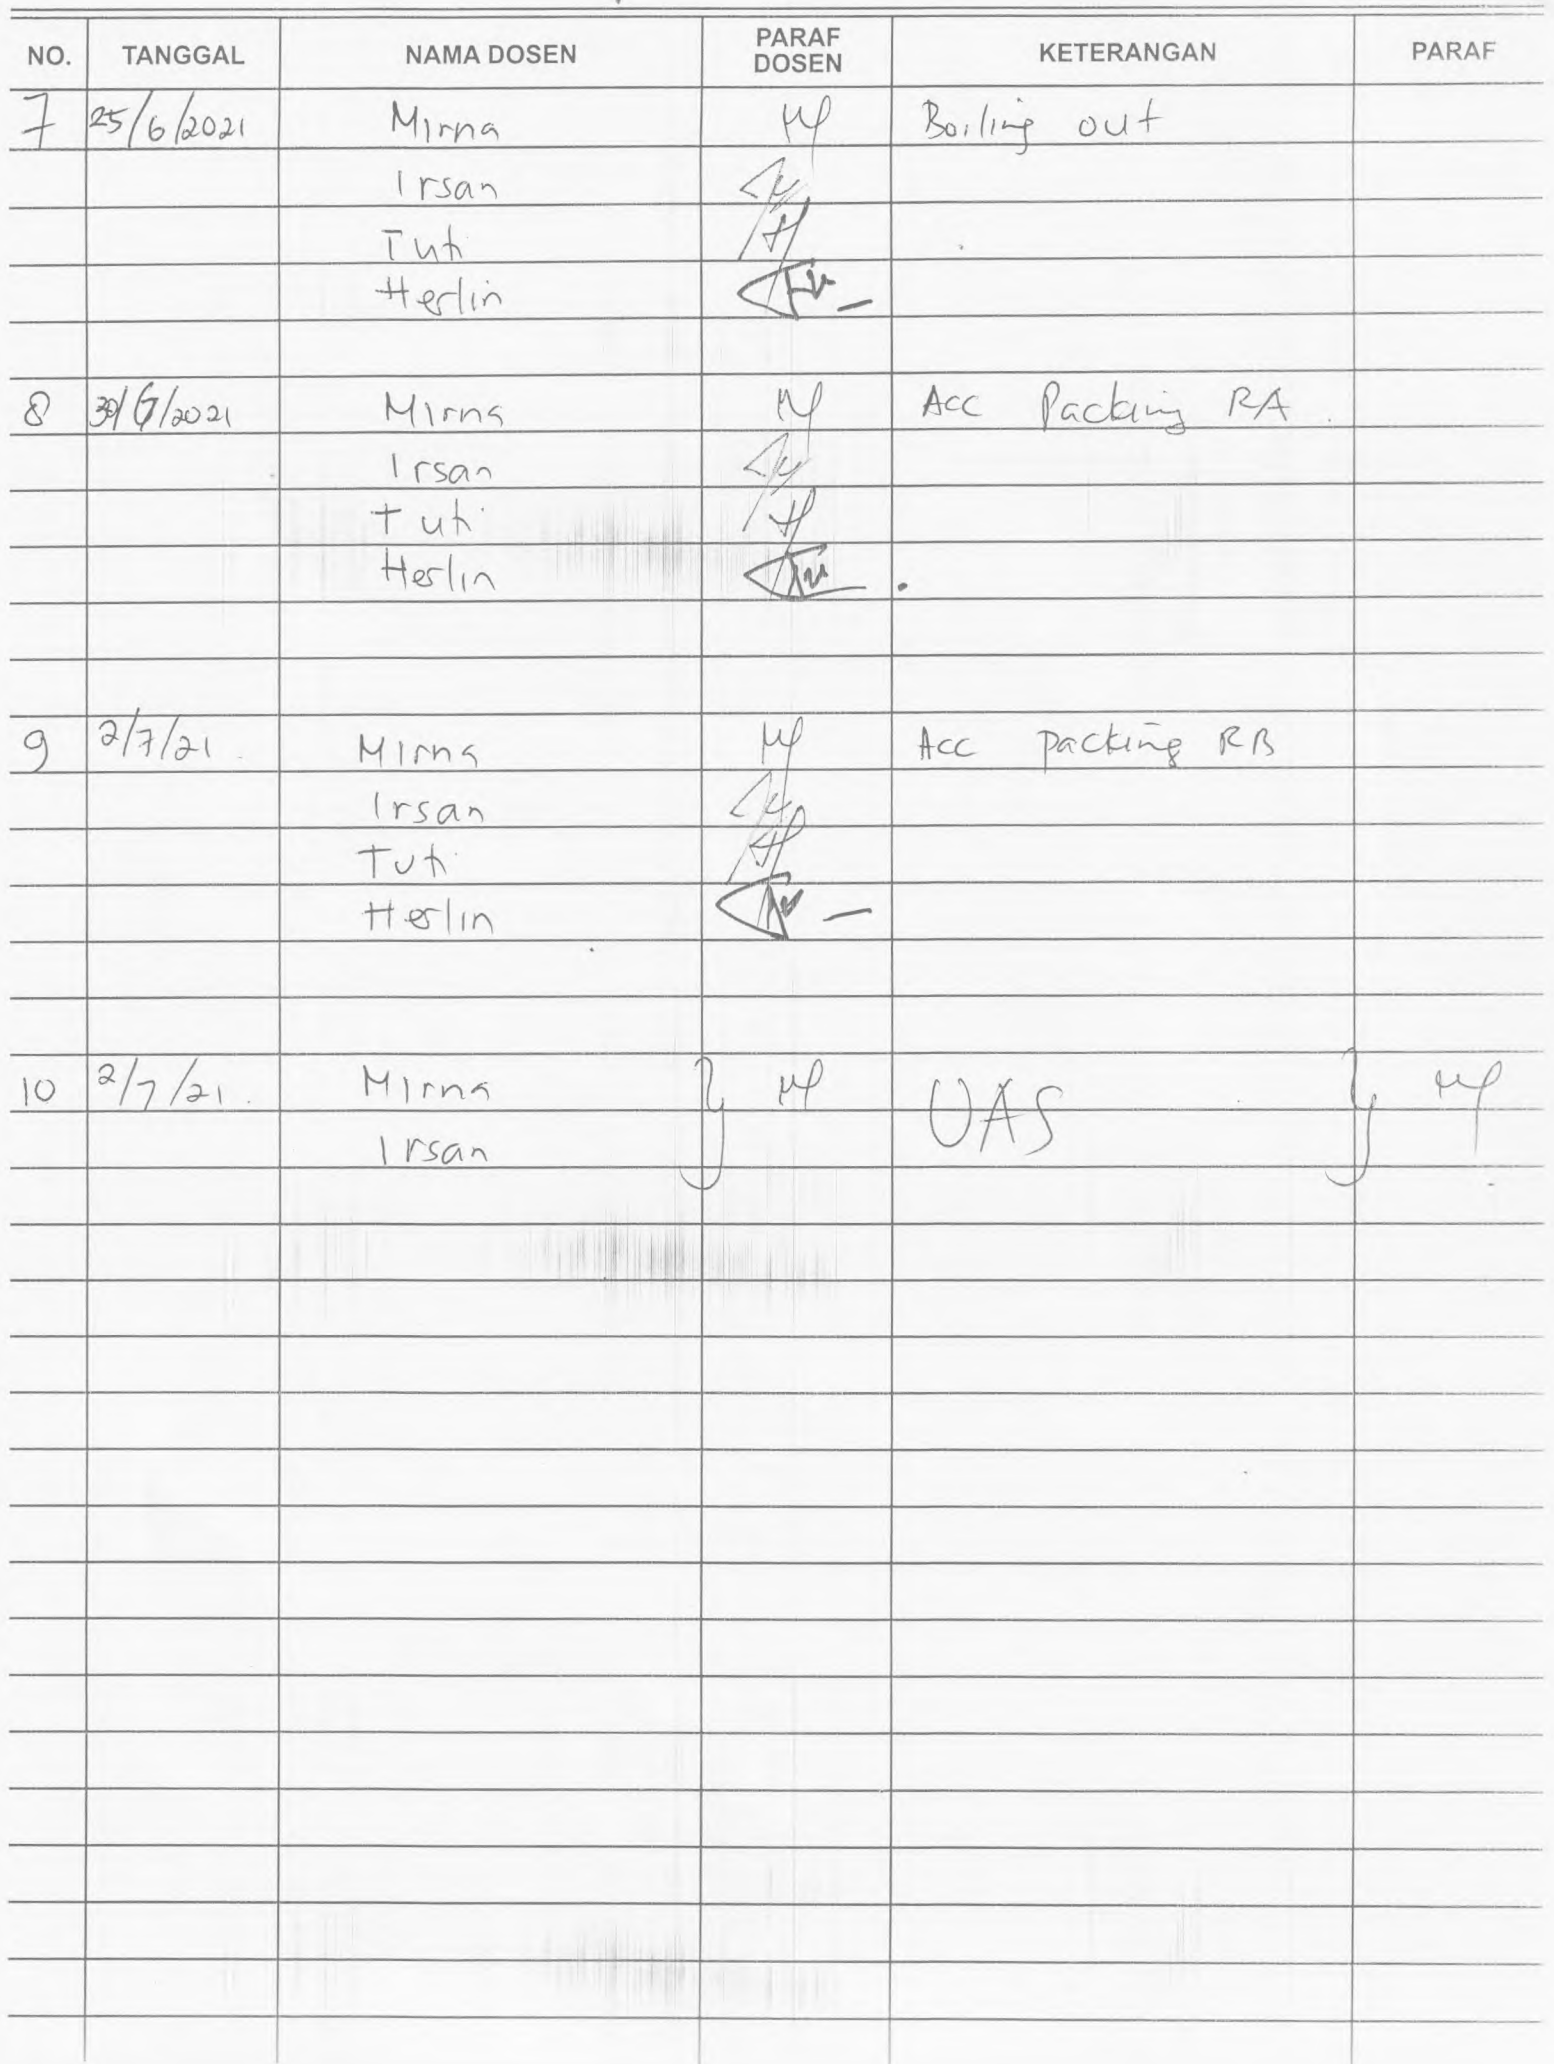 NO. TANGGAL NAMA DOSEN PARAF DOSEN KETERANGAN PARAF
7 25/6/2021 Mirna Boiling out
Irsan
Tuti
Herlin
8 30/6/2021 Mirna Acc Packing RA
Irsan
Tuti
Herlin
9 2/7/21 Mirna Acc packing RB
Irsan
Tuti
Herlin
10 2/7/21. Mirna UAS
Irsan